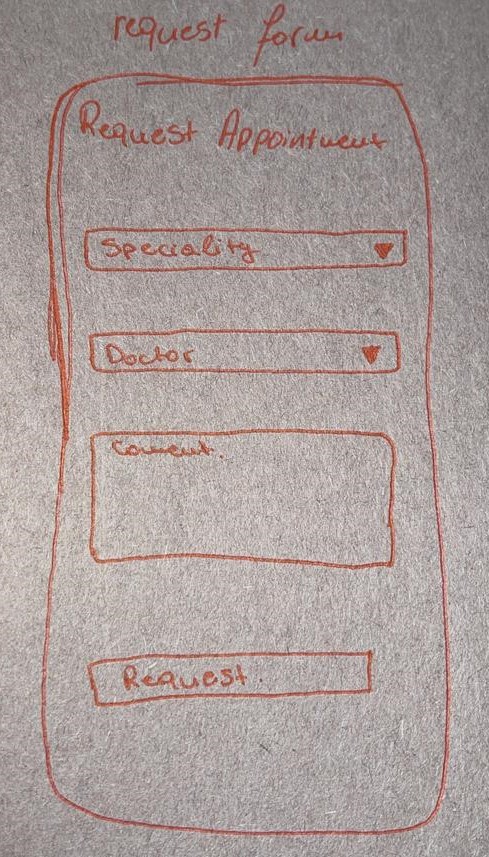 request form
Request Appointment
Speciality
Doctor
Coment.
Request.